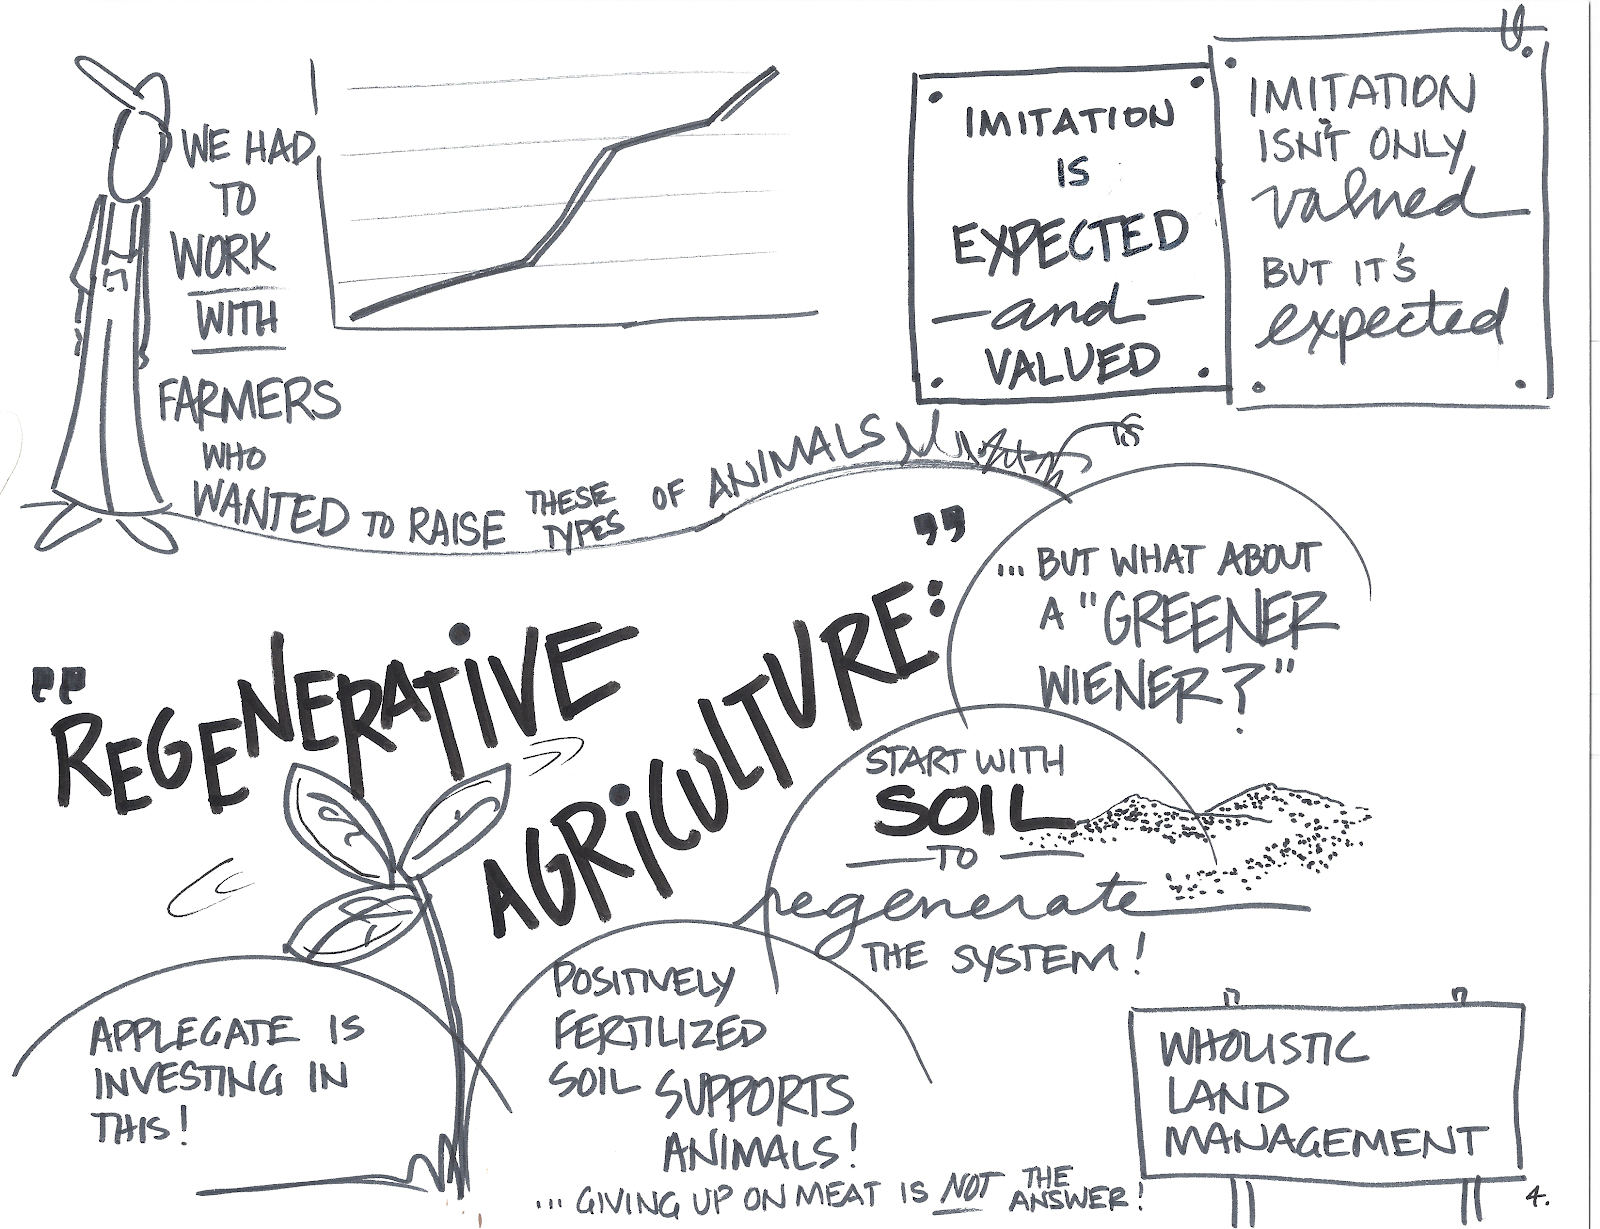 WE HAD
TO
WORK
WITH
FARMERS
WHO
WANTED TO RAISE THESE TYPES OF ANIMALS
IMITATION
IS
EXPECTED
—and—
VALUED
IMITATION
ISN'T ONLY
valued
BUT IT'S
expected
"REGENERATIVE
AGRICULTURE:"
...BUT WHAT ABOUT
A "GREENER
WIENER?"
START WITH
SOIL
—TO—
regenerate
THE SYSTEM!
POSITIVELY
FERTILIZED
SOIL SUPPORTS
ANIMALS!
...GIVING UP ON MEAT IS NOT THE ANSWER!
APPLEGATE IS
INVESTING IN
THIS!
WHOLISTIC
LAND
MANAGEMENT
4.